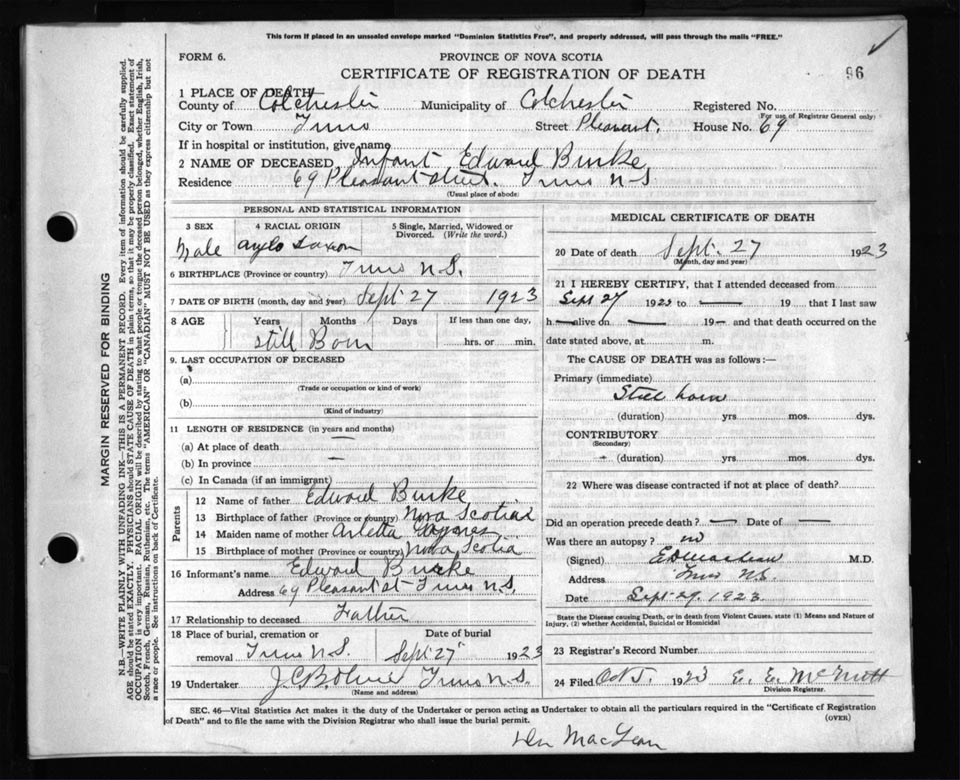 This form if placed in an unsealed envelope marked "Dominion Statistics Free", and properly addressed, will pass through the mails "FREE."
FORM 6.
PROVINCE OF NOVA SCOTIA
96
CERTIFICATE OF REGISTRATION OF DEATH
1 PLACE OF DEATH
County of Colchester Municipality of Colchester Registered No.
For use of Registrar General only:
City or Town Truro Street Pleasant. House No. 69
If in hospital or institution, give name
2 NAME OF DECEASED Infant Edward Burke
Residence 69 Pleasant street. Truro N-S
(Usual place of abode)
PERSONAL AND STATISTICAL INFORMATION
3 SEX 4 RACIAL ORIGIN 5 Single, Married, Widowed or Divorced. (Write the word.)
Male Anglo Saxon
6 BIRTHPLACE (Province or country) Truro N.S.
7 DATE OF BIRTH (month, day and year) Sept 27 1923
8 AGE Years Months Days If less than one day,
still Born hrs. or min.
9. LAST OCCUPATION OF DECEASED
(a)
(Trade or occupation or kind of work)
(b)
(Kind of industry)
11 LENGTH OF RESIDENCE (in years and months)
(a) At place of death
(b) In province
(c) In Canada (if an immigrant)
Parents
12 Name of father Edward Burke
13 Birthplace of father (Province or country) Nova Scotia
14 Maiden name of mother Arletta
15 Birthplace of mother (Province or country) Nova Scotia
16 Informant's name Edward Burke
Address 69 Pleasant st Truro N.S.
17 Relationship to deceased Father
18 Place of burial, cremation or removal Truro N.S. Date of burial Sept 27 1923
19 Undertaker Truro N.S.
(Name and address)
MEDICAL CERTIFICATE OF DEATH
20 Date of death Sept. 27 1923
(Month, day and year)
21 I HEREBY CERTIFY, that I attended deceased from
Sept 27 1923 to — 19 that I last saw
h — alive on — 19 — and that death occurred on the
date stated above, at m.
The CAUSE OF DEATH was as follows:—
Primary (immediate)
Still born
(duration) yrs. mos. dys.
CONTRIBUTORY
(Secondary)
(duration) yrs. mos. dys.
22 Where was disease contracted if not at place of death?
Did an operation precede death? — Date of —
Was there an autopsy? no
(Signed) M.D.
Address Truro N.S.
Date Sept. 29. 1923
State the Disease causing Death, or in death from Violent Causes, state (1) Means and Nature of Injury, (2) whether Accidental, Suicidal or Homicidal
23 Registrar's Record Number
24 Filed Oct 1. 1923 E. E. McNutt
Division Registrar.
SEC. 46—Vital Statistics Act makes it the duty of the Undertaker or person acting as Undertaker to obtain all the particulars required in the "Certificate of Registration
of Death" and to file the same with the Division Registrar who shall issue the burial permit. (OVER)
Dr MacLean
MARGIN RESERVED FOR BINDING
N.B.—WRITE PLAINLY WITH UNFADING INK—THIS IS A PERMANENT RECORD. Every item of information should be carefully supplied.
AGE should be stated EXACTLY. PHYSICIANS should STATE CAUSE OF DEATH in plain terms, so that it may be properly classified. Exact statement of
OCCUPATION is very important. RACIAL ORIGIN will be described by stating to what people or tongue the deceased person belonged, whether English, Irish,
Scotch, French, German, Russian, Ruthenian, etc. The terms "AMERICAN" or "CANADIAN" MUST NOT BE USED as they express citizenship but not
a race or people. See instructions on back of Certificate.